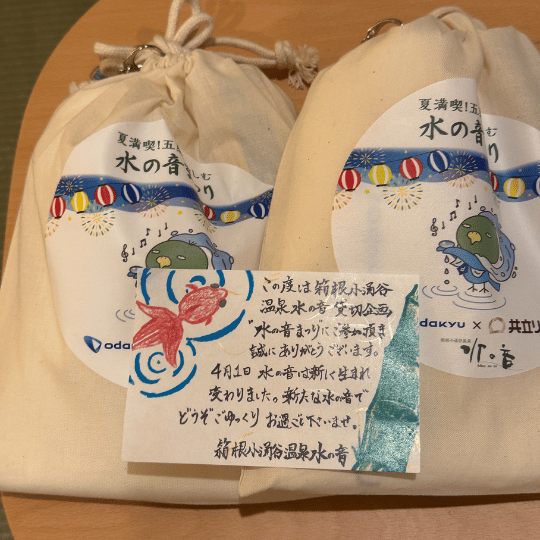 夏満喫!五
水の音
むり
oda
夏満喫!五
水の音
む
り
odakyu × 共立リ
水の音
この度は箱根小涌谷
温泉水の音 貸切企画
"水の音まつり"にご参加頂き
誠にありがとうございます。
4月1日 水の音は新しく生まれ
変わりました。新たな水の音で
どうぞごゆっくり お過ごし下さいませ。
箱根小涌谷温泉 水の音